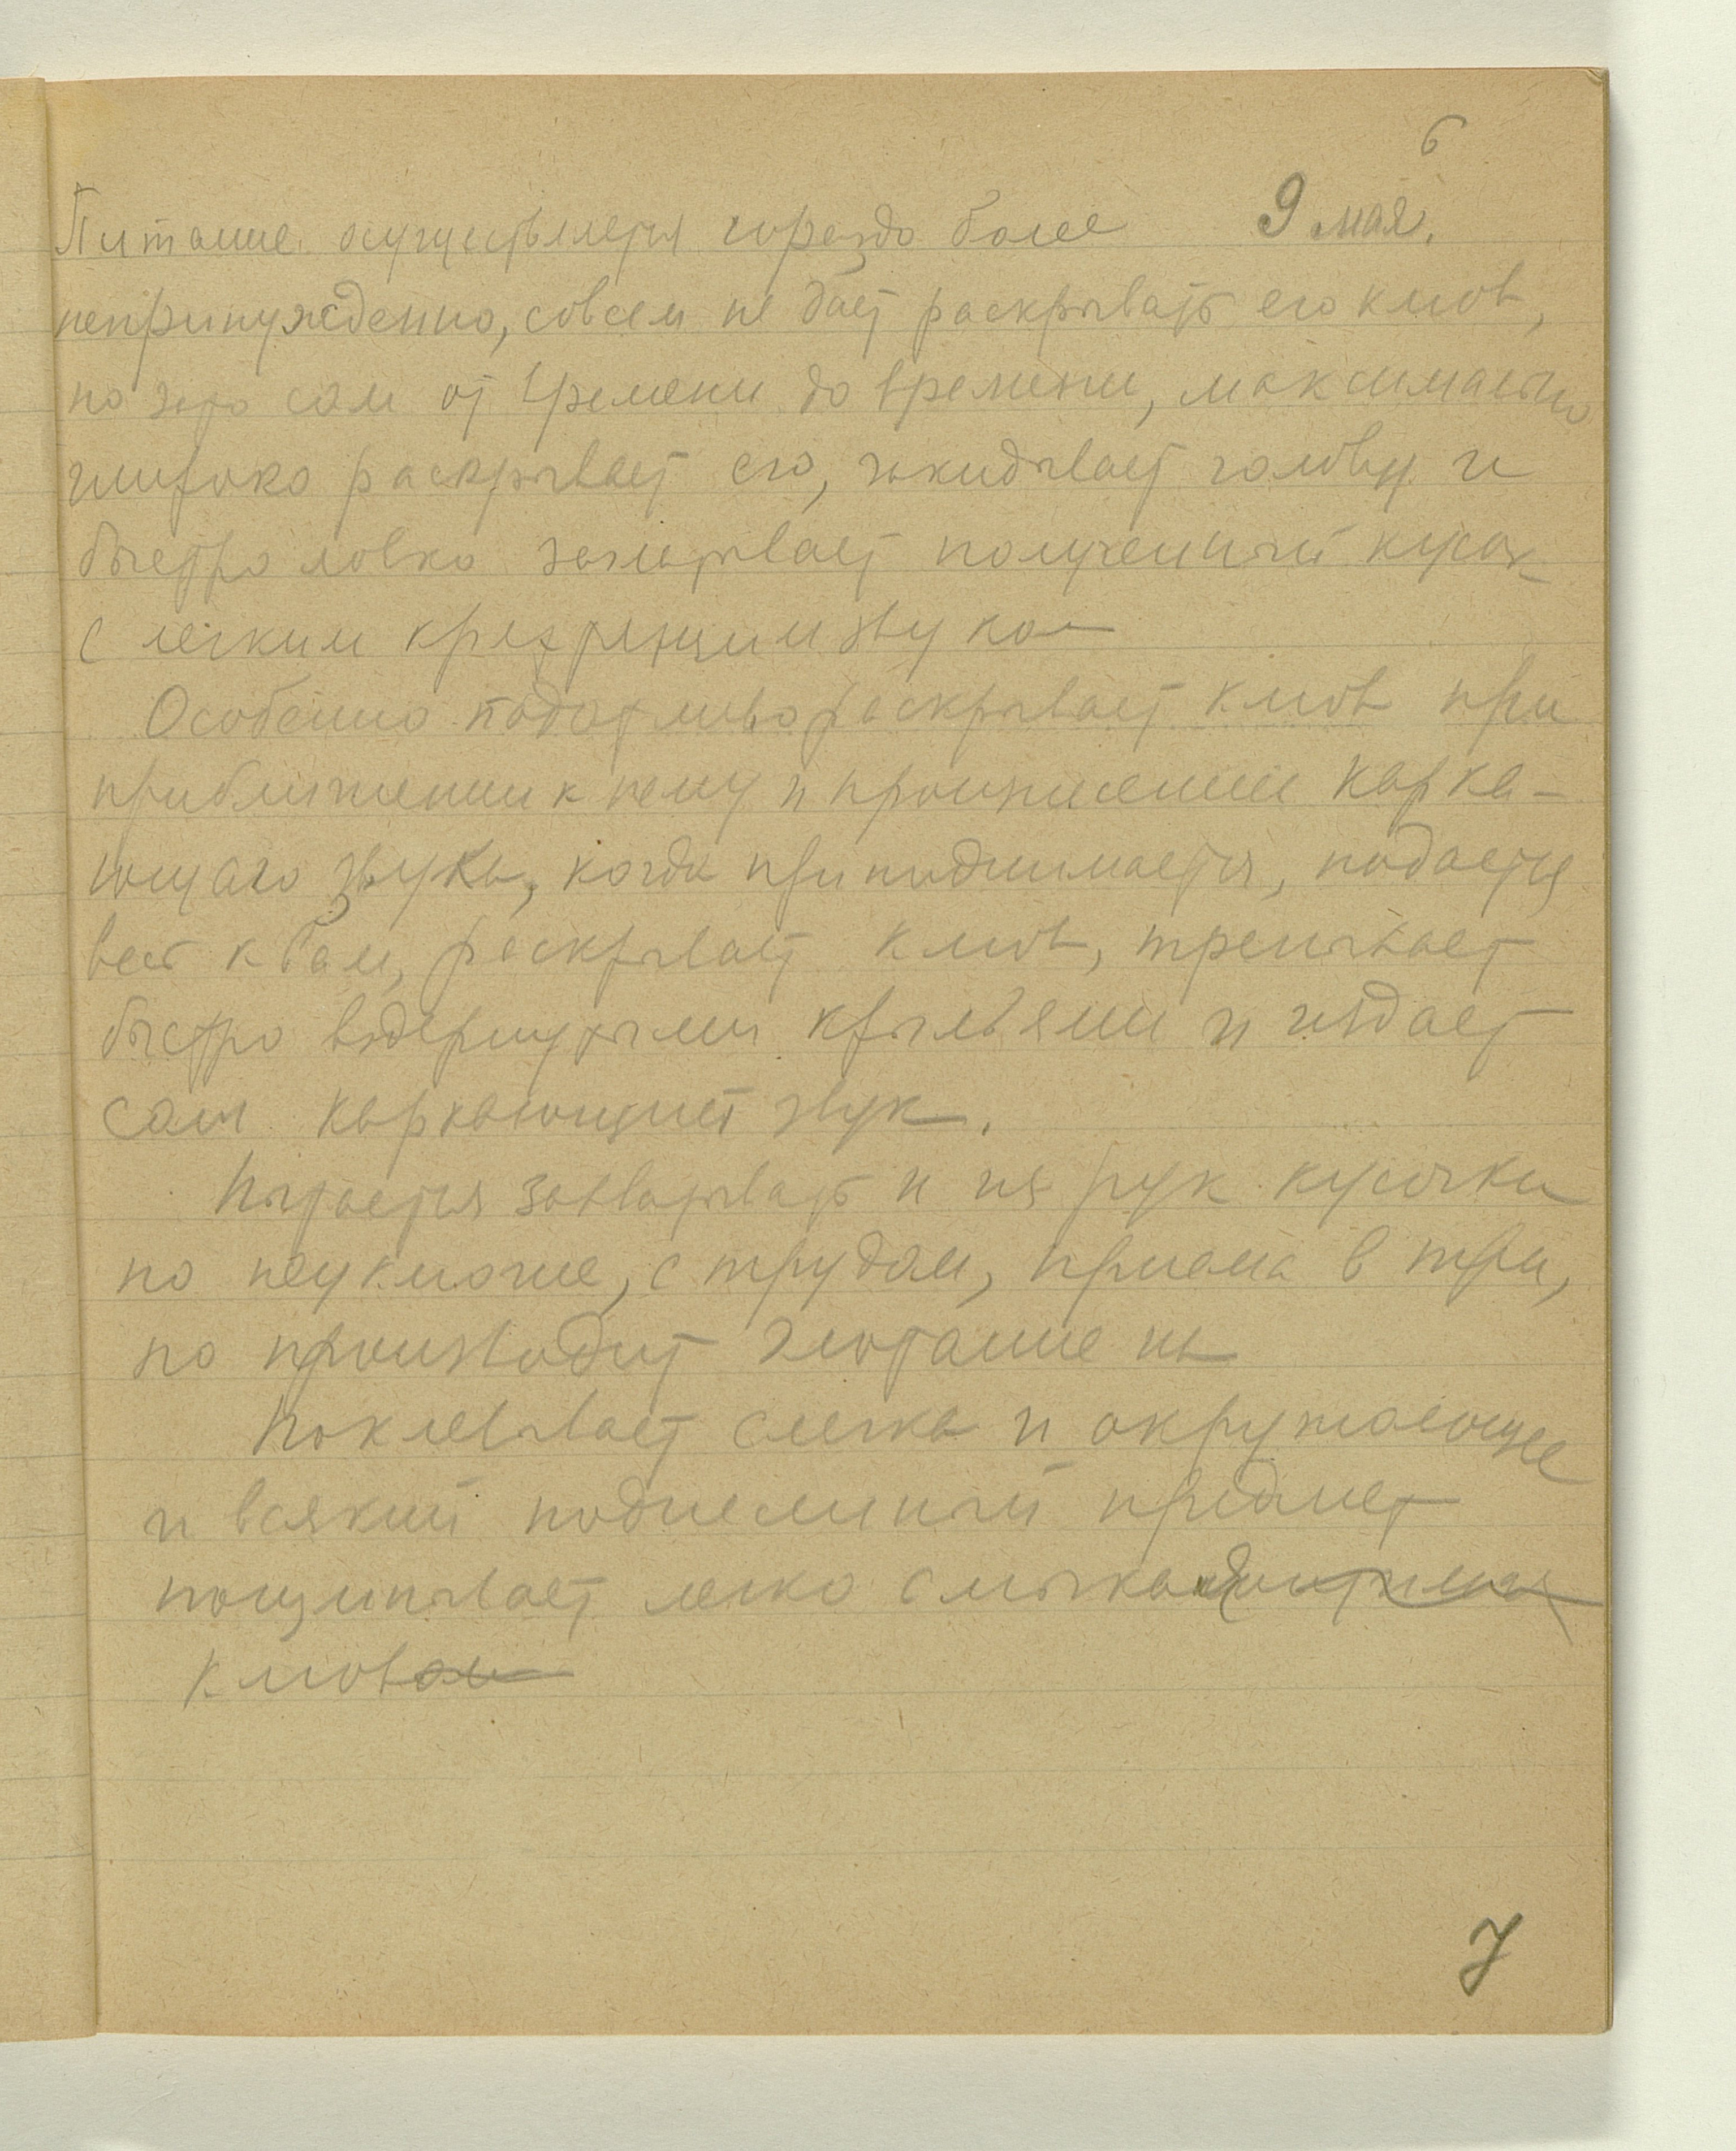 6
Питание осуществляется гораздо более 9 мая.
непринужденно, совсем не дает раскрывать его клюв,
но зато сам от времени до времени, максимально
широко раскрывает его, закидывает голову и
быстро ловко заглатывает полученный кусок
с легким звуком
Особенно податливо раскрывает клюв при
приближении к нему и произнесении карка-
ющаго звука, когда приподнимается, подается
весь к Вам, раскрывает клюв, трепыхает
быстро крыльями и издает
сам каркающий звук.
Пытается захватывать и из рук кусочки
но неуклюже, с трудом, приема в три,
но производит глотание их
Поклевывает слегка и окружающее
и всякий поднесенный предмет
пощипывает легко смыкая
клюв
7